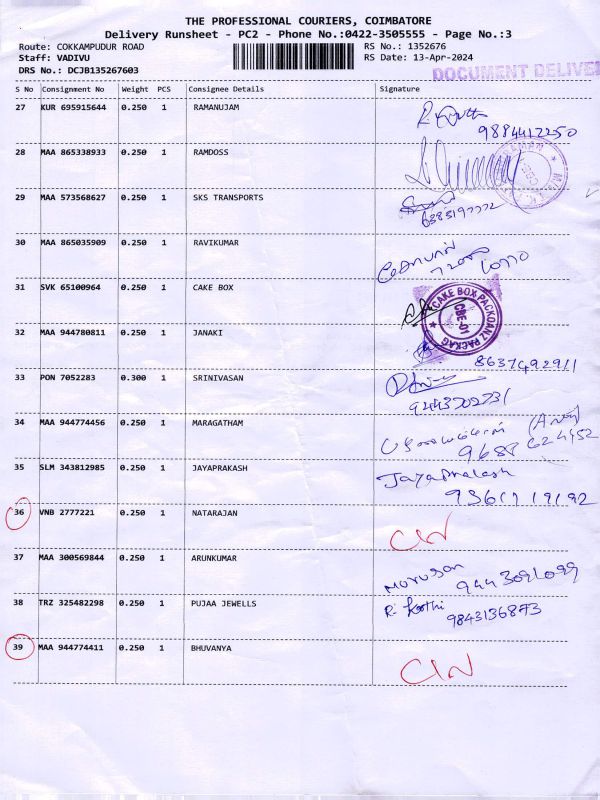 THE PROFESSIONAL COURIERS, COIMBATORE
Delivery Runsheet - PC2 - Phone No.:0422-3505555 - Page No.:3
Route: COKKAMPUDUR ROAD RS No.: 1352676
Staff: VADIVU RS Date: 13-Apr-2024
DRS No.: DCJB135267603
DOCUMENT DELIVE
S No Consignment No Weight PCS Consignee Details Signature
27 KUR 695915644 0.250 1 RAMANUJAM
9884412250
28 MAA 865338933 0.250 1 RAMDOSS
29 MAA 573568627 0.250 1 SKS TRANSPORTS
30 MAA 865035909 0.250 1 RAVIKUMAR
31 SVK 65100964 0.250 1 CAKE BOX
CAKE BOX PACKDANZ PACKAG
CBE-01
32 MAA 944780811 0.250 1 JANAKI
8637492911
33 PON 7052283 0.300 1 SRINIVASAN
34 MAA 944774456 0.250 1 MARAGATHAM
9688 624452
35 SLM 343812985 0.250 1 JAYAPRAKASH Jayaprakash
36 VNB 2777221 0.250 1 NATARAJAN
37 MAA 300569844 0.250 1 ARUNKUMAR Murugan
38 TRZ 325482298 0.250 1 PUJAA JEWELLS
9843136873
39 MAA 944774411 0.250 1 BHUVANYA